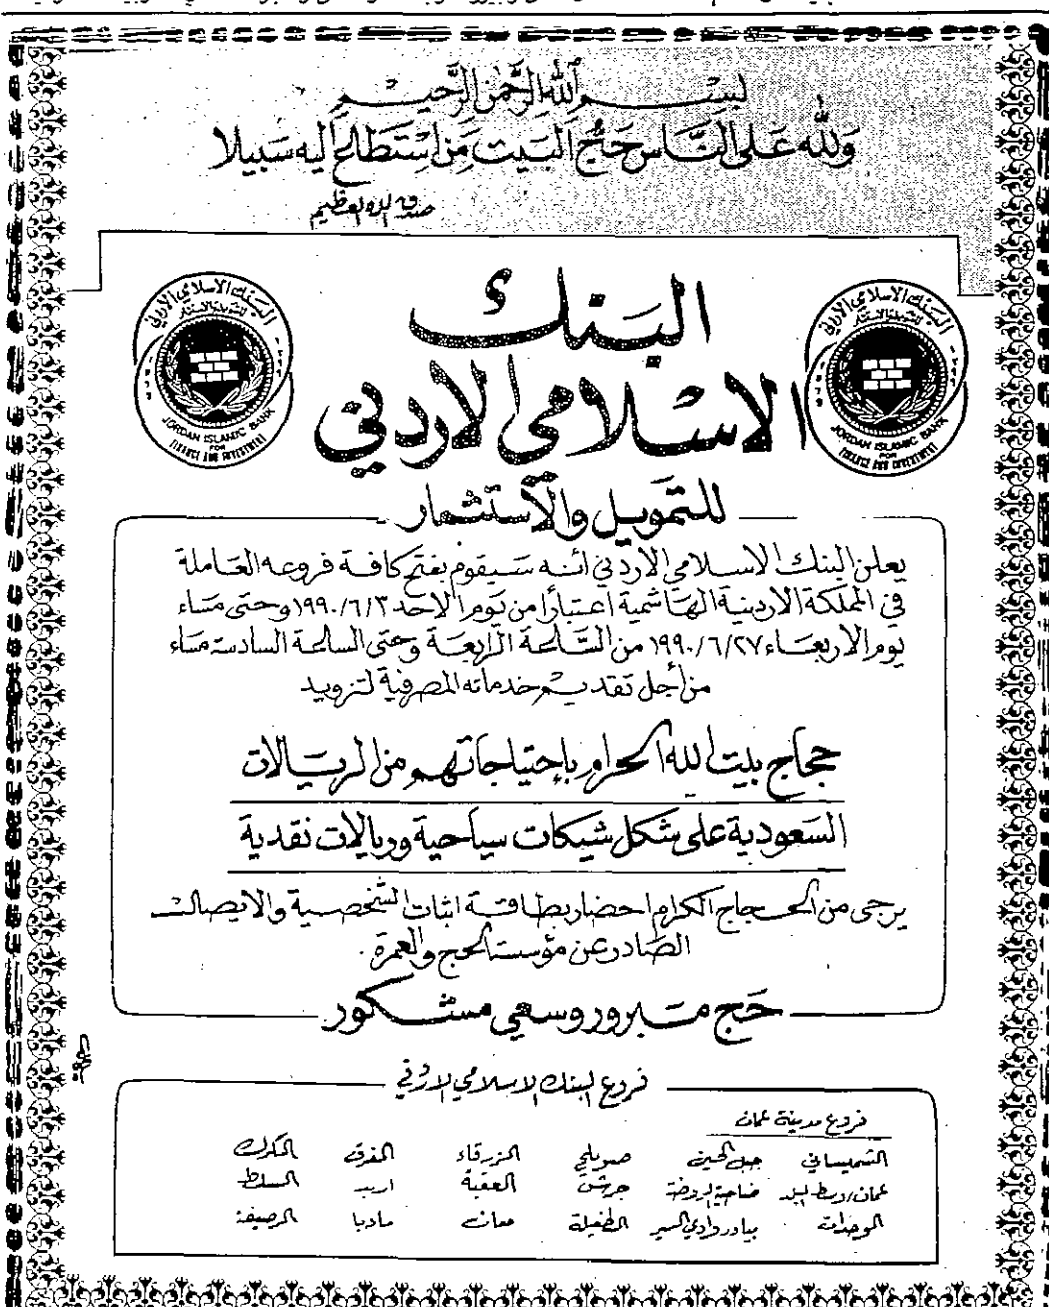 بسم الله الرحمن الرحيم
ولله على الناس حج البيت من استطاع اليه سبيلا
صدق الله العظيم
البنك
الاسلامي الاردني
للتمويل والاستثمار
البنك الاسلامي الاردني
JORDAN ISLAMIC BANK
FOR
FINANCE AND INVESTMENT
البنك الاسلامي الاردني
JORDAN ISLAMIC BANK
FOR
FINANCE AND INVESTMENT
يعلن البنك الاسلامي الاردني انه سيقوم بفتح كافة فروعه العاملة
في المملكة الاردنية الهاشمية اعتبارا من يوم الاحد ١٩٩٠/٦/٣ وحتى مساء
يوم الاربعاء ١٩٩٠/٦/٢٧ من الساعة الرابعة وحتى الساعة السادسة مساء
من أجل تقديم خدماته المصرفية لتزويد
حجاج بيت الله الحرام بإحتياجاتهم من الريالات
السعودية على شكل شيكات سياحية وريالات نقدية
يرجى من الحجاج الكرام احضار بطاقة اثبات الشخصية والايصالات
الصادر عن مؤسسة الحج والعمرة .
حج مبرور وسعي مشكور
فروع البنك الاسلامي الاردني
فروع مدينة عمان
الشميساني جبل الحسين صويلح الزرقاء المفرق الكرك
عمان/وسط البلد ضاحية الروضة جرش العقبة اربد السلط
الوحدات بيادر وادي السير الطفيلة معان مادبا الرصيفة